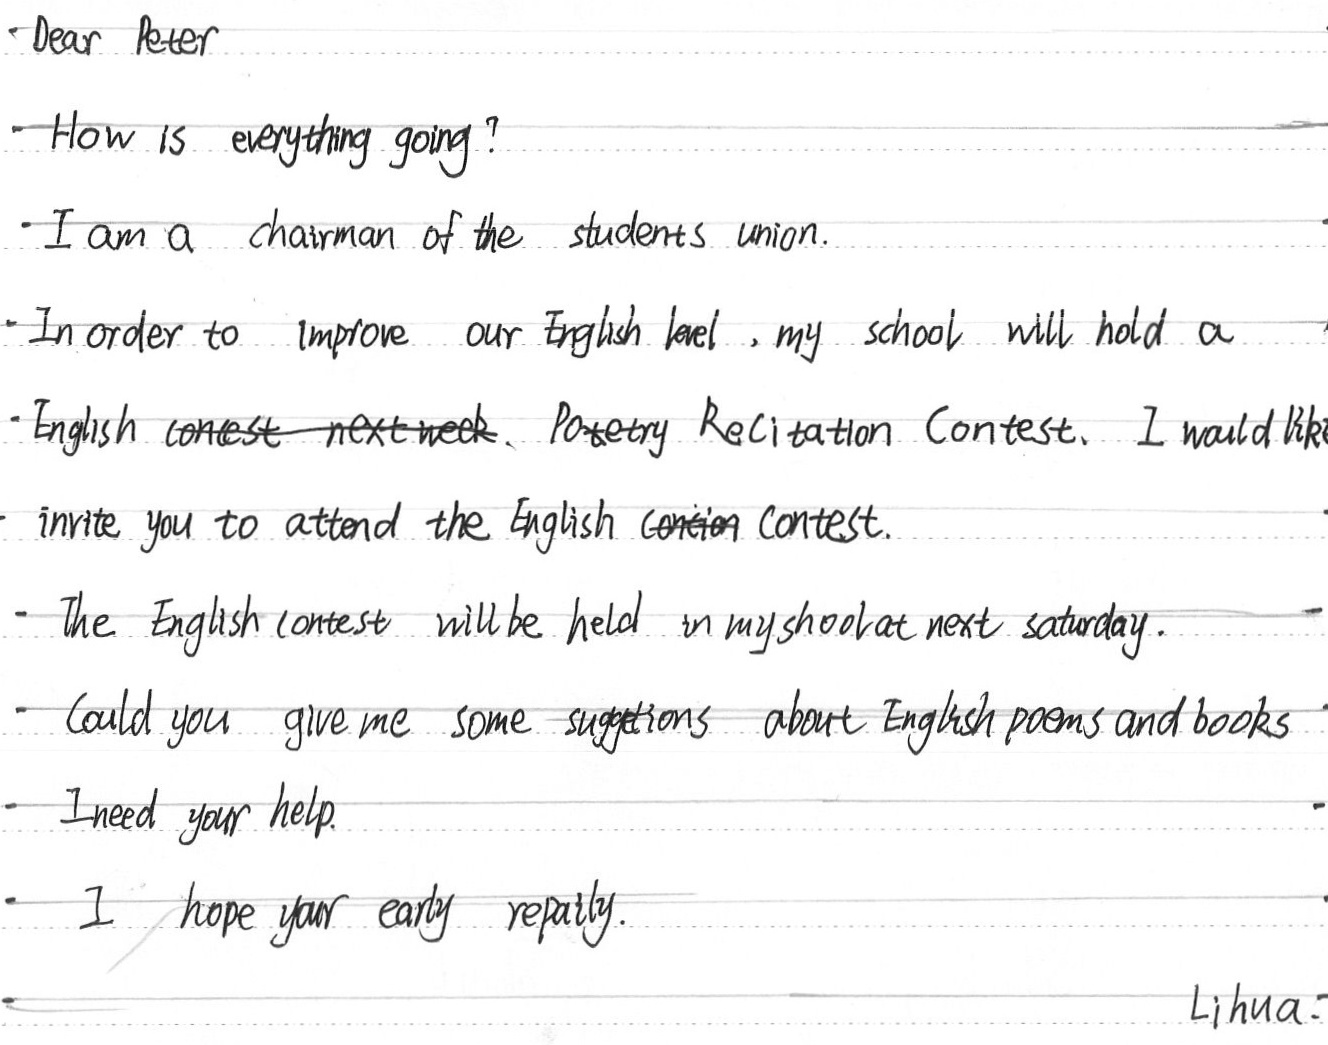 Dear Peter
How is everything going?
I am a chairman of the students union.
In order to improve our English level, my school will hold a
English contest next week. Potetry Recitation Contest. I would like
invite you to attend the English contion contest.
The English contest will be held in my shool at next saturday.
Could you give me some suggetions about English poems and books
I need your help.
I hope your early repaily.
Lihua.